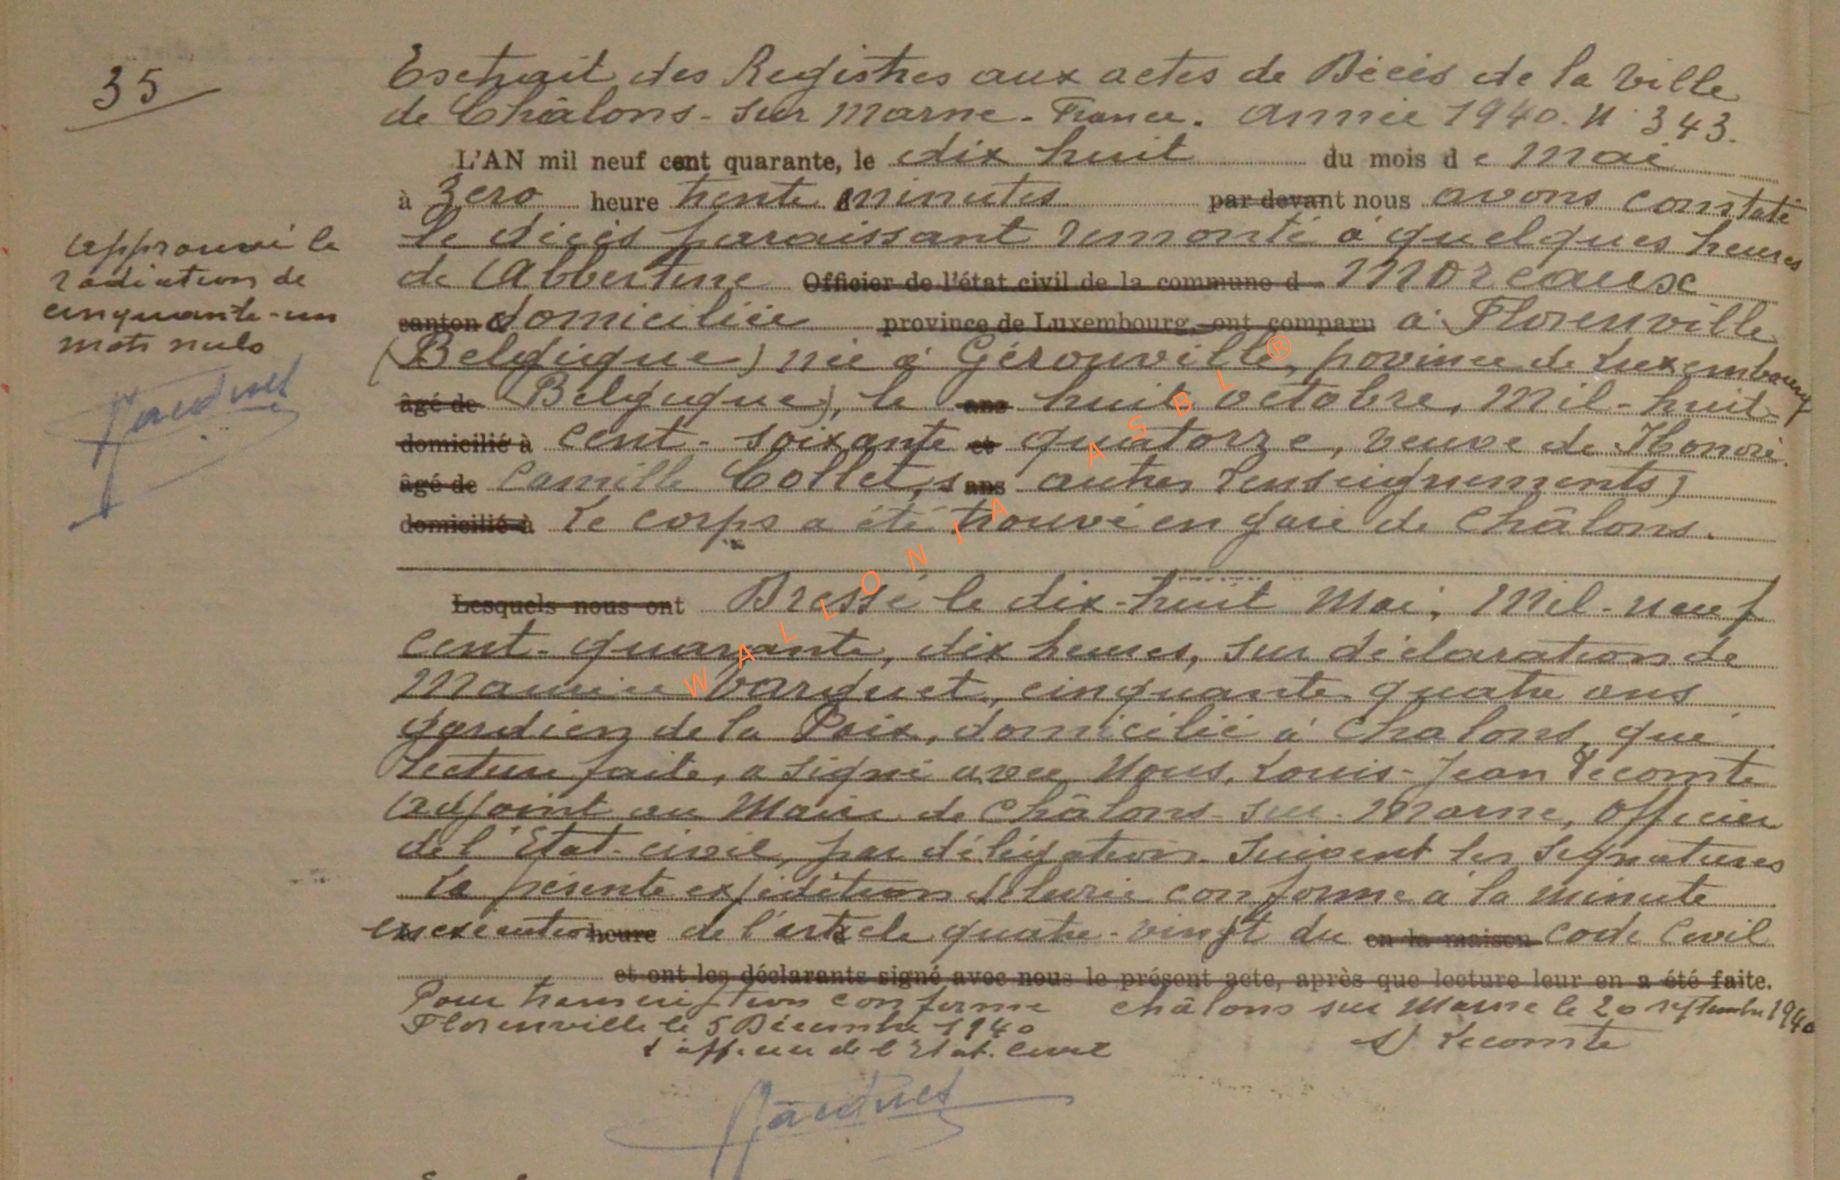 35
Extrait des Registres aux actes de Décès de la Ville
de Châlons-sur Marne - France. Année 1940. N° 343.
L'AN mil neuf cent quarante, le dix huit du mois de Mai
à Zero heure trente minutes par devant nous avons constaté
le décès paraissant remonté à quelques heures
de Abbertine Officier de l'état civil de la commune d Moreaux
canton d domiciliée province de Luxembourg, ont comparu à Florenville
(Belgique) née à Gérouville, province de Luxembourg
âgé de Belgique), le ans huit octobre, Mil-huit
domicilié à cent-soixante et quatorze, veuve de Honoré
âgé de Camille Collet, s ans autres renseignements;
domicilié à Le corps a été trouvé en gare de Châlons.
Lesquels nous ont Dressé le dix-huit Mai, Mil-neuf
cent-quarante, dix heures, sur déclaration de
Maurice Varquet, cinquante quatre ans
gardien de la Paix, domicilié à Chalons, qui
lecture faite, a signé avec Nous, Louis-Jean Lecomte
adjoint au Maire de Châlons-sur-Marne, Officier
de l'Etat-civil, par délégation. Suivent les signatures
La présente expédition délivrée conforme à la minute
en exécution heure de l'article quatre-vingt du en la maison code Civil
et ont les déclarants signé avec nous le présent acte, après que lecture leur en a été faite.
Pour transcription conforme Châlons sur Marne le 20 septembre 1940
Florenville le 5 Décembre 1940
L'officier de l'Etat. Civil s) Lecomte
Jacques
Approuvé la
radiation de
cinquante-un
mots nuls
Jacques
WALLONIA ASBL®